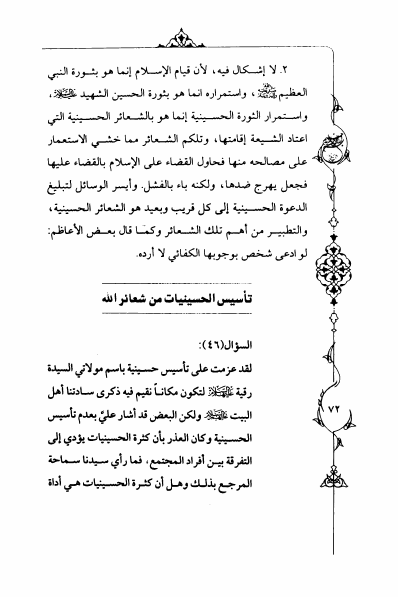 ٢. لا إشكال فيه، لأن قيام الإسلام إنما هو بثورة النبي
العظيم ﷺ، واستمراره انما هو بثورة الحسين الشهيد عليه السلام،
واستمرار الثورة الحسينية إنما هو بالشعائر الحسينية التي
اعتاد الشيعة إقامتها، وتلكم الشعائر مما خشي الاستعمار
على مصالحه منها فحاول القضاء على الإسلام بالقضاء عليها
فجعل يهرج ضدها، ولكنه باء بالفشل. وأيسر الوسائل لتبليغ
الدعوة الحسينية إلى كل قريب وبعيد هو الشعائر الحسينية،
والتطبير من أهم تلك الشعائر وكما قال بعض الأعاظم:
لو ادعى شخص بوجوبها الكفائي لا أرده.
تأسيس الحسينيات من شعائر الله
السؤال(٤٦):
لقد عزمت على تأسيس حسينية باسم مولاتي السيدة
رقية لتكون مكاناً نقيم فيه ذكرى سادتنا أهل
البيت ولكن البعض قد أشار عليّ بعدم تأسيس
الحسينية وكان العذر بأن كثرة الحسينيات يؤدي إلى
التفرقة بين أفراد المجتمع، فما رأي سيدنا سماحة
المرجع بذلك وهل أن كثرة الحسينيات هي أداة
٧٢